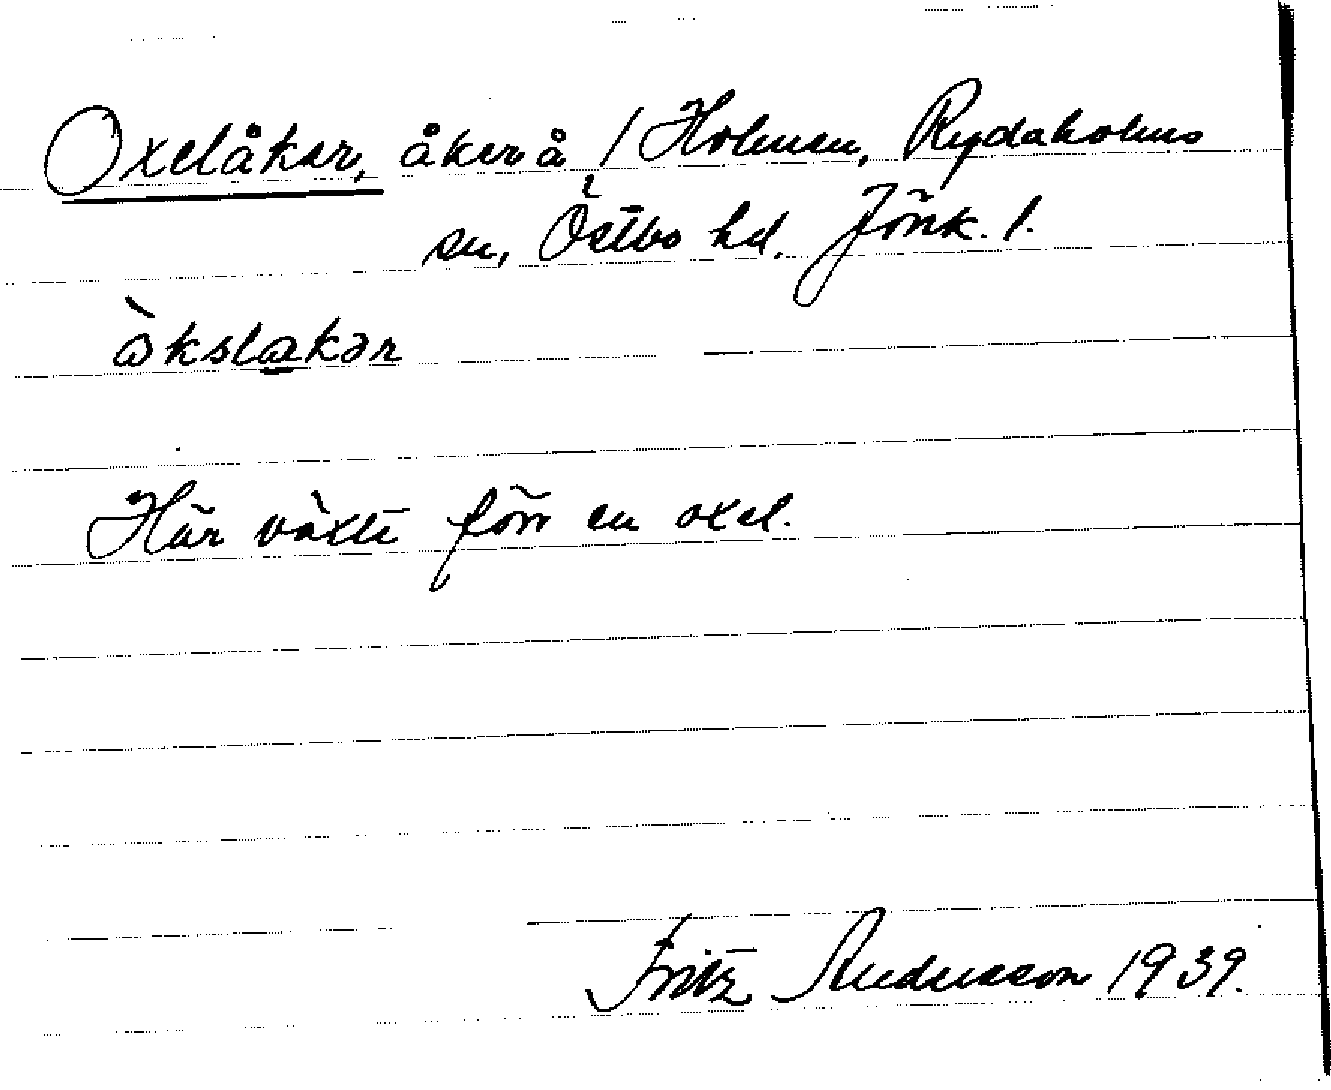 Oxelåker, åker å / Holmen, Rydaholms
sn, Östbo hd. Jönk. l.
Här växte förr en oxel.
Fritz Andersson 1939.